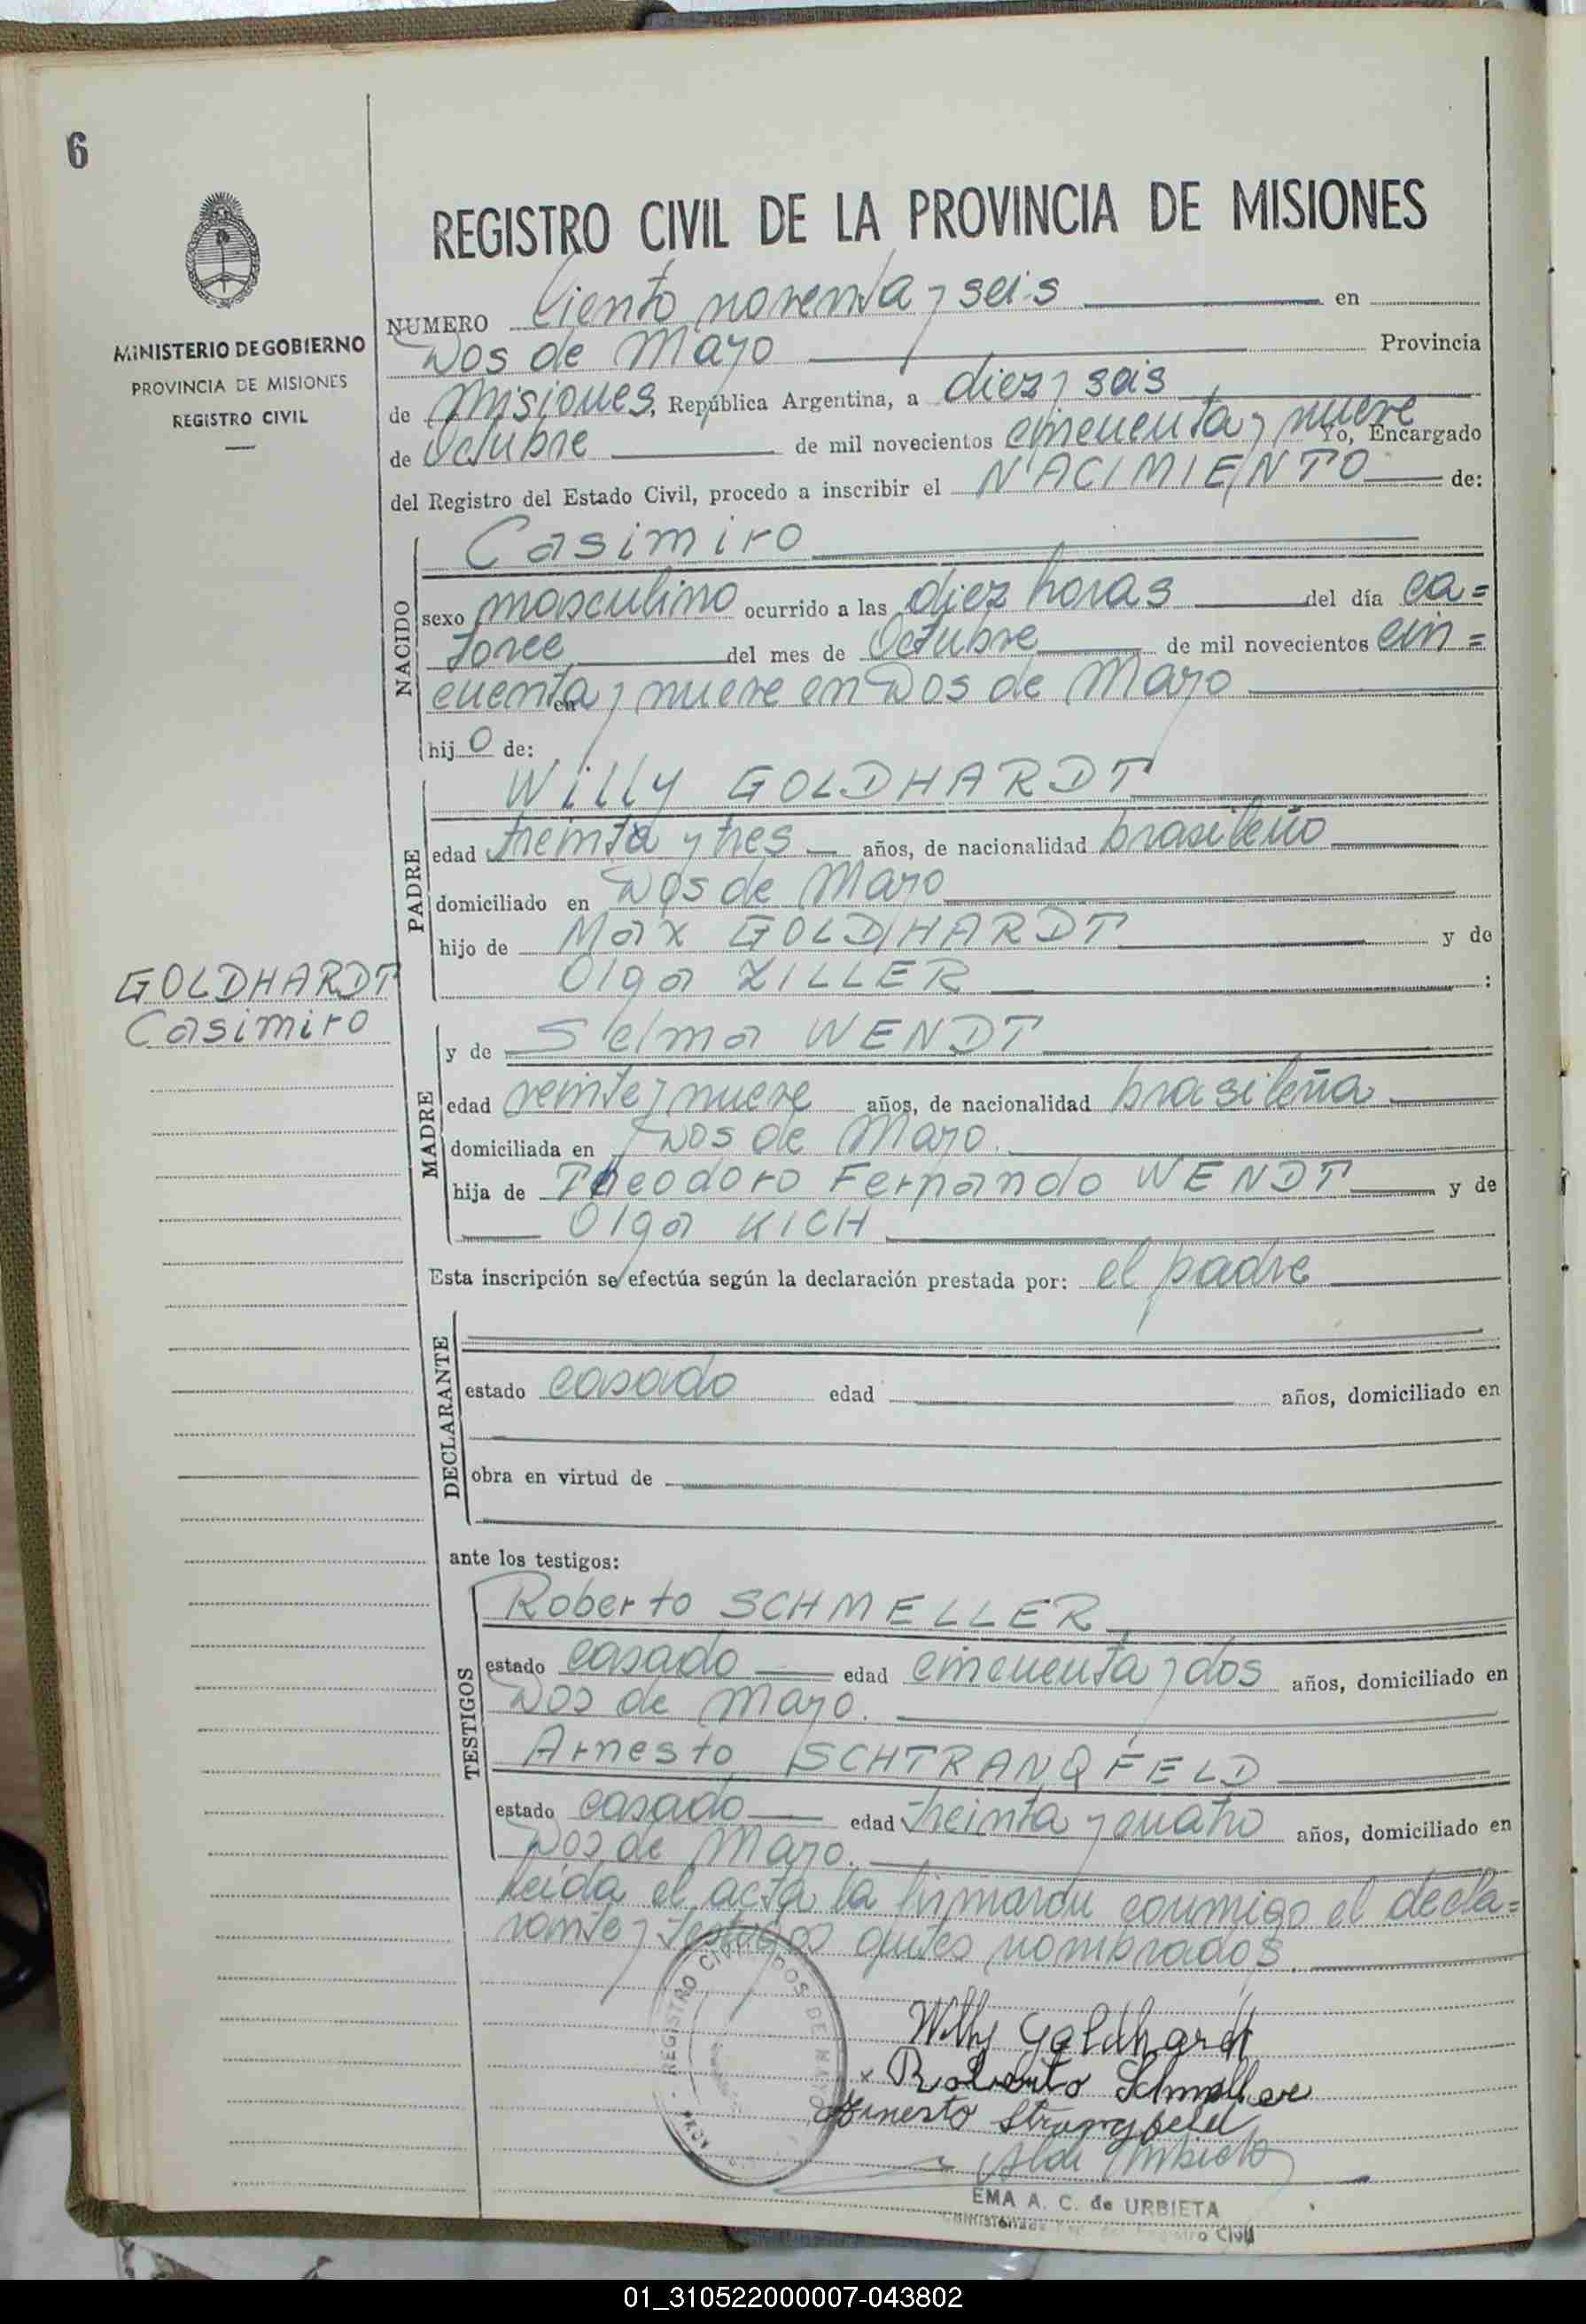 6
MINISTERIO DE GOBIERNO
PROVINCIA DE MISIONES
REGISTRO CIVIL
GOLDHARDT
Casimiro
REGISTRO CIVIL DE LA PROVINCIA DE MISIONES
NUMERO Ciento noventa y seis en
Dos de Mayo Provincia
de Misiones, República Argentina, a diez y seis
de Octubre de mil novecientos cincuenta y nueve Yo, Encargado
del Registro del Estado Civil, procedo a inscribir el NACIMIENTO de:
NACIDO
Casimiro
sexo masculino ocurrido a las diez horas del día ca=
torce del mes de Octubre de mil novecientos cin=
cuenta y nueve en Dos de Mayo
en
hijo de:
PADRE
Willy GOLDHARDT
edad treinta y tres años, de nacionalidad brasileño
domiciliado en Dos de Mayo
hijo de Max GOLDHARDT y de
Olga ZILLER :
MADRE
y de Selma WENDT
edad veinte y nueve años, de nacionalidad brasileña
domiciliada en Dos de Mayo.
hija de Theodoro Fernando WENDT y de
Olga KICH
Esta inscripción se efectúa según la declaración prestada por: el padre
DECLARANTE
estado casado edad años, domiciliado en
obra en virtud de
ante los testigos:
TESTIGOS
Roberto SCHMELLER
estado casado edad cincuenta y dos años, domiciliado en
Dos de Mayo.
Arnesto SCHTRANQFELD
estado casado edad treinta y cuatro años, domiciliado en
Dos de Mayo.
Leida el acta la firmarán conmigo el decla=
rante y testigos antes nombrados.
REGISTRO CIVIL DOS DE MAYO
Willy Goldhardt
x Roberto Schmeller
Ernesto Strangfeld
EMA A. C. de URBIETA
Registro Civil
01_310522000007-043802